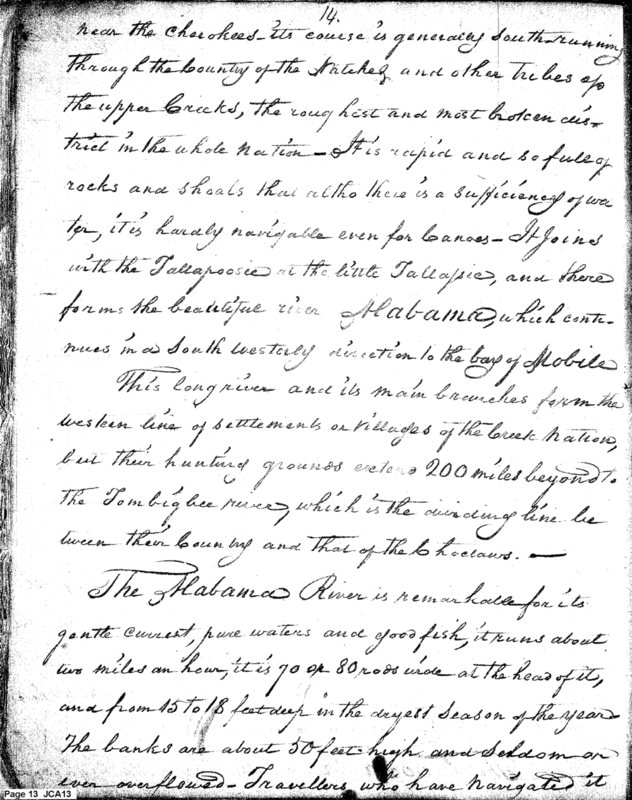 14.
near the Cherokees - its course is generally south-running
through the Country of the Natchez and other tribes of
the upper Creeks, the roughest and most broken dis-
trict in the whole nation - It is rapid and so full of
rocks and shoals that altho there is a sufficiency of wa
ter, it is hardly navigable even for Canoes - It Joins
with the Tallapoosie at the little Tallassie, and there
forms the beautiful river Alabama, which conti-
nues in a South westerly direction to the bay of Mobile
This long river and its main branches form the
western line of settlements or villages of the Creek Nation,
but their hunting grounds extend 200 miles beyond to
the Tombigbee river, which is the dividing line be
tween their Country and that of the Choctaws. -
The Alabama River is remarkable for its
gentle current, pure waters and good fish, it runs about
two miles an hour, it is 70 or 80 rods wide at the head of it,
and from 15 to 18 feet deep in the dryest season of the year
The banks are about 50 feet high and seldom or
ever overflowed - Travellers who have navigated it
Page 13 JCA13